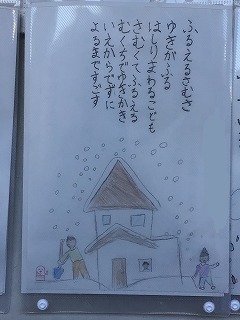 ふるえるさむさ
ゆきがふる
はしりまわるこども
さむくてふるえる
むくちでゆきかき
いえからでずに
よるまですごす